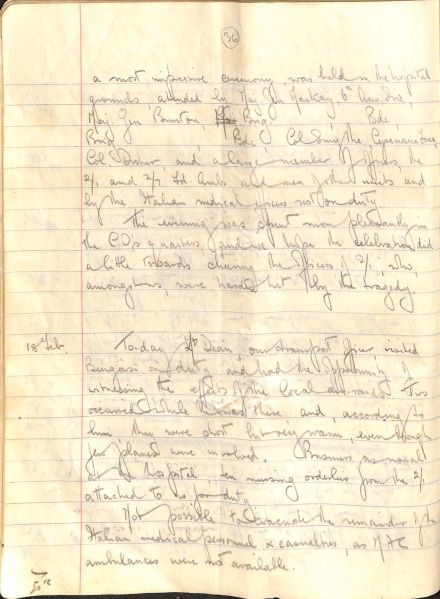 36
a most impressive ceremony, was held in the hospital
grounds, attended by Maj. Gen Mackay, 6th Aus. Div.,
Maj. Gen Burston, Brig. , Bde,
Brig , Bde, Col. the Cyrenaica Force,
Col. Disher, and a large number of officers, the
2/1 and 2/7 Fd Ambs, and men of other units and
by the Italian medical officers not on duty.
The evening was spent most pleasantly in
the C.O's quarters and we hope the celebration did
a little towards cheering the officers of 2/1, who,
amongst us, were hardest hit by the tragedy.
18 Feb. To-day Lt Dean, our transport officer visited
Bengasi on duty and had the opportunity of
witnessing the effects of the local air-raids. Two
occurred while he was there and, according to
him they were short but very warm, even though
few planes were involved. Business as normal
at the hospital, ten nursing orderlies from the 2/1
attached to us for duty.
Not possible to evacuate the remainder of the
Italian medical personnel & casualties, as MAC
ambulances were not available.